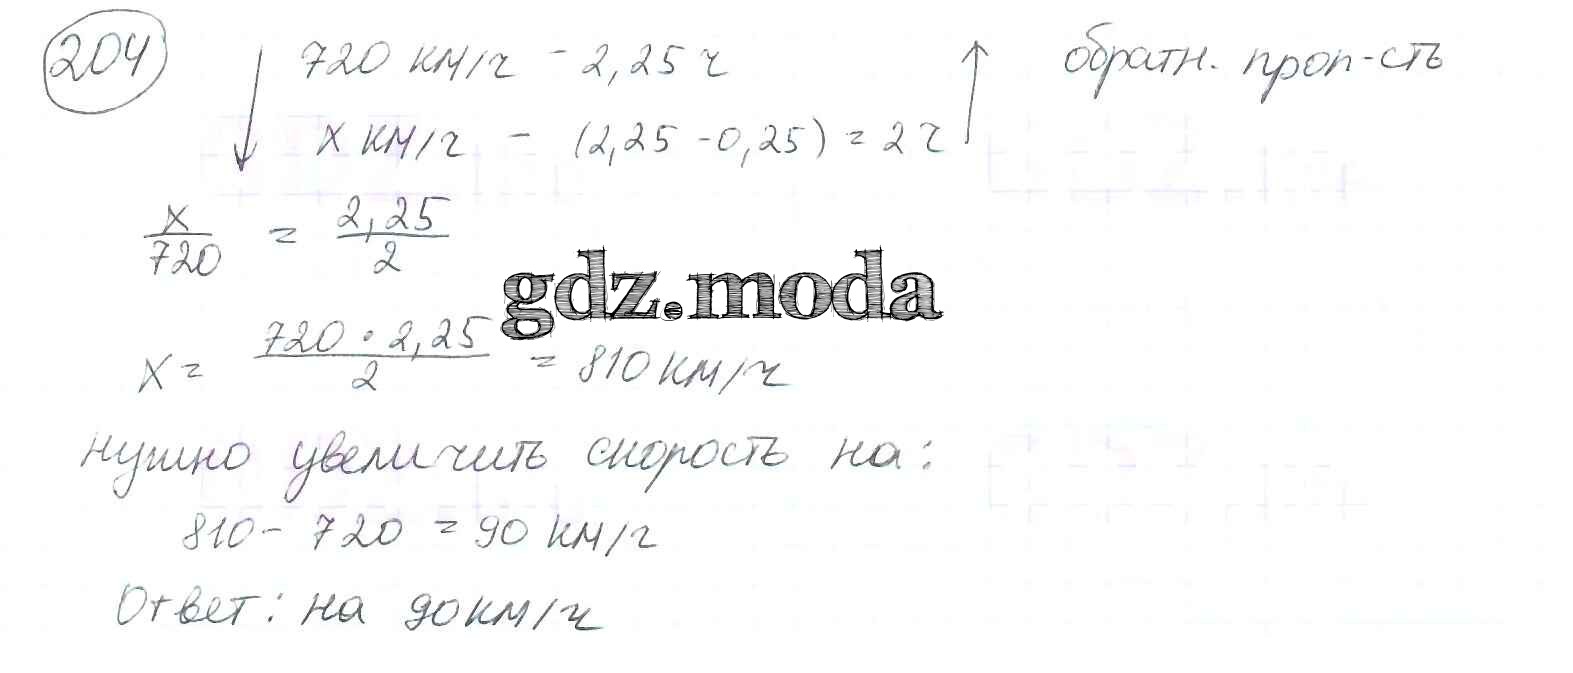 204 720 км/ч - 2,25 ч обратн. проп-сть
х км/ч - (2,25 - 0,25) = 2 ч
х/720 = 2,25/2
gdz.moda
х = 720 · 2,25/2 = 810 км/ч
нужно увеличить скорость на:
810 - 720 = 90 км/ч
Ответ: на 90 км/ч